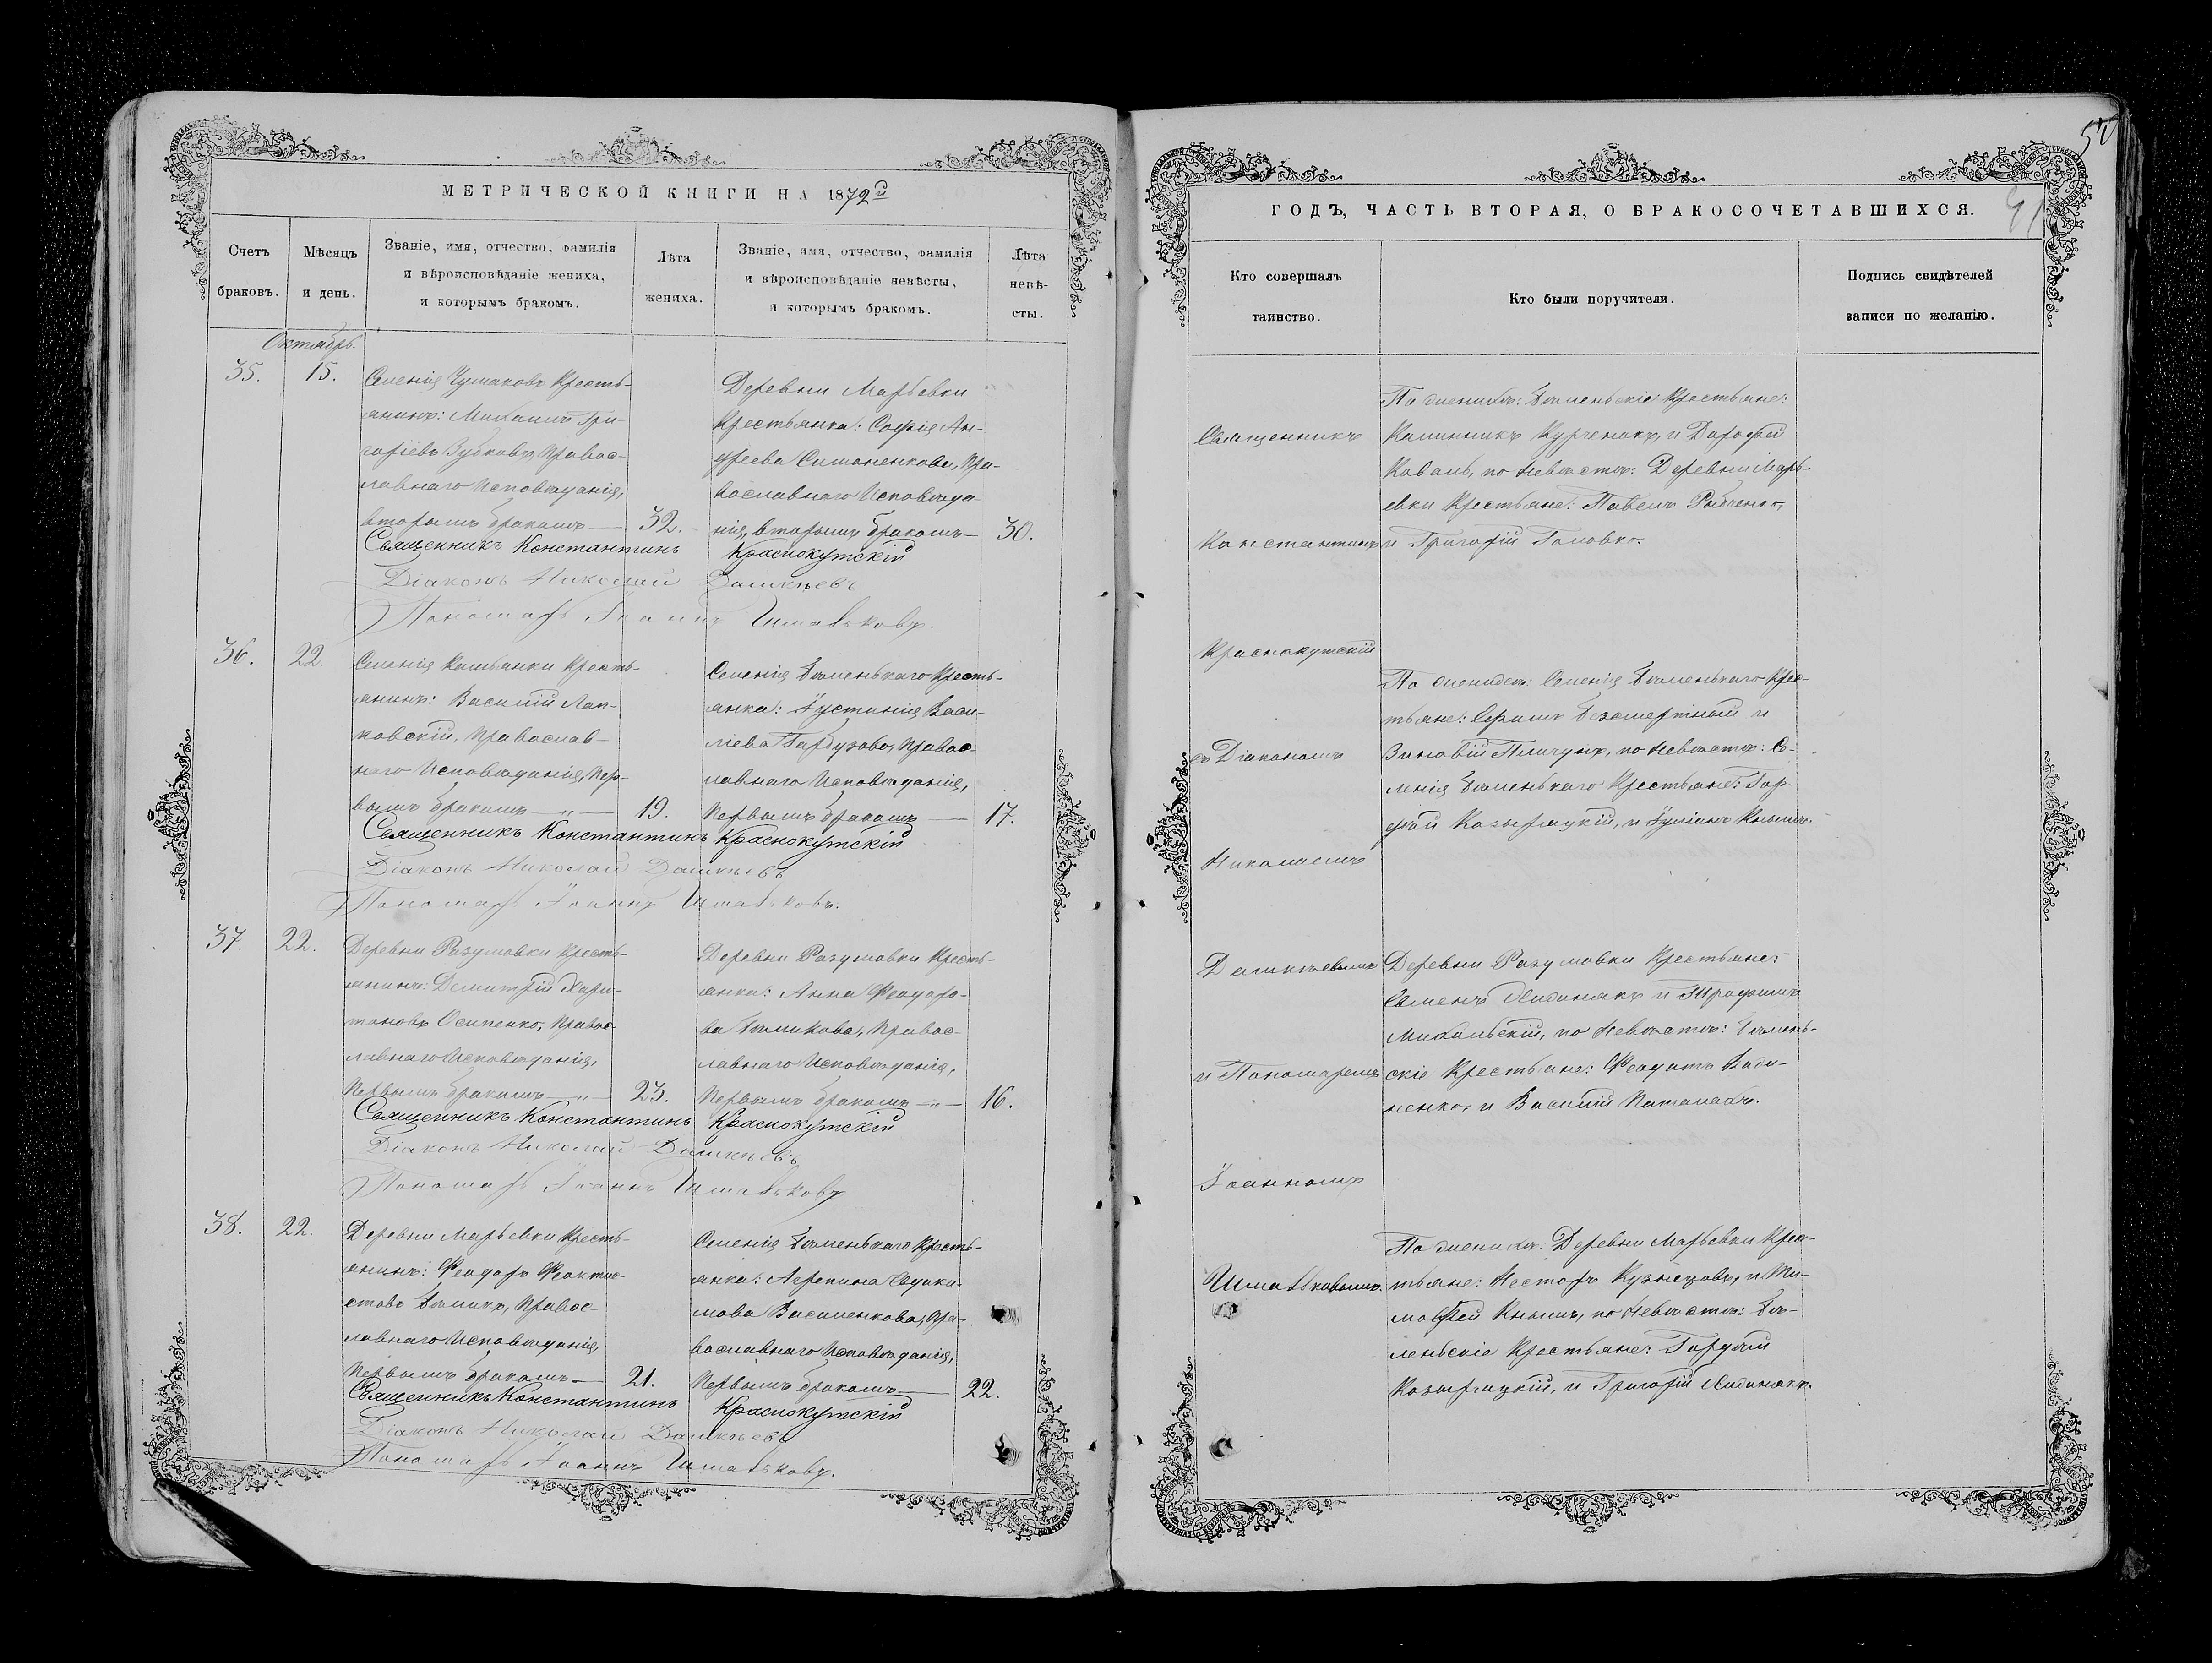 МЕТРИЧЕСКОЙ КНИГИ НА 1872й
Счетъ браковъ.
Мѣсяцъ и день.
Званіе, имя, отчество, фамилія
и вѣроисповѣданіе жениха,
и которымъ бракомъ.
Лѣта жениха.
Званіе, имя, отчество, фамилія
и вѣроисповѣданіе невѣсты,
и которымъ бракомъ.
Лѣта невѣ-
сты.
Октябрь.
35.
15.
Селенія Чумаковъ Кресть-
янинъ: Михаилъ Гри-
горіевъ Зубковъ, Правос-
лавнаго Исповѣданія,
вторымъ бракомъ —
32.
Деревни Марьевки
Крестьянка: Софія Ан-
дреева Симоненкова, Пра-
вославнаго Исповѣда-
нія, вторымъ бракомъ —
30.
Священникъ Константинъ Краснокутскій
Діаконъ Николай Дашкѣевъ
Пономарь Іоаннъ
36.
22.
Селенія Камьянки Кресть-
янинъ: Василій Лап-
ковскій, Православ-
наго Исповѣданія, Пер-
вымъ бракомъ — " —
19.
Селенія Бѣленькаго Кресть-
янка: Іустинія Васи-
ліева Гарбузова, Правос-
лавнаго Исповѣданія,
Первымъ бракомъ —
17.
Священникъ Константинъ Краснокутскій
Діаконъ Николай Дашкѣевъ
Пономарь Іоаннъ
37.
22.
Деревни Разумовки Кресть-
янинъ: Димитрій Хари-
тоновъ Осипенко, Правос-
лавнаго Исповѣданія,
Первымъ бракомъ — " —
23.
Деревни Разумовки Кресть-
янка: Анна Феодоро-
ва Бѣликова, Правос-
лавнаго Исповѣданія,
Первымъ бракомъ — " —
16.
Священникъ Константинъ Краснокутскій
Діаконъ Николай Дашкѣевъ
Пономарь Іоаннъ
38.
22.
Деревни Марьевки Кресть-
янинъ: Феодоръ Феокти-
стовъ Бѣликъ, Правос-
лавнаго Исповѣданія,
Первымъ бракомъ —
21.
Селенія Бѣленькаго Кресть-
янка: Агрепина Евдоки-
мова Василенкова, Пра-
вославнаго Исповѣданія,
Первымъ бракомъ —
22.
Священникъ Константинъ Краснокутскій
Діаконъ Николай Дашкѣевъ
Пономарь Іоаннъ
50
91
ГОДЪ, ЧАСТЬ ВТОРАЯ, О БРАКОСОЧЕТАВШИХСЯ.
Кто совершалъ
таинство.
Кто были поручители.
Подпись свидѣтелей
записи по желанію.
Священникъ
Константинъ
Краснокутскій
съ Діакономъ
Николаемъ
Дашкѣевымъ
и Пономаремъ
Іоанномъ
По женихѣ: Бѣленьскіе Крестьяне:
Калинникъ Курченко, и Дорофей
Коваль, по Невѣстѣ: Деревни Марь-
евки Крестьяне: Павелъ Рябченко,
и Григорій Головко.
По женихѣ: Селенія Бѣленькаго Крес-
тьяне: Ефимъ Безсмертный и
Зиновій по Невѣстѣ: Се-
ленія Бѣленькаго Крестьяне: Гор-
дѣй Козырацкій, и Іуліанъ Книшъ.
Деревни Разумовки Крестьяне:
Семенъ Жидинякъ и Трофимъ
Михальскій, по Невѣстѣ: Бѣлень-
скіе Крестьяне: Феодотъ
и Василій
По женихѣ: Деревни Марьевки Крес-
тьяне: Несторъ Кузнецовъ, и Ти-
мофей Книшъ, по Невѣстѣ: Бѣ-
леньскіе Крестьяне: Гордѣй
Козырацкій, и Григорій Жидинякъ.